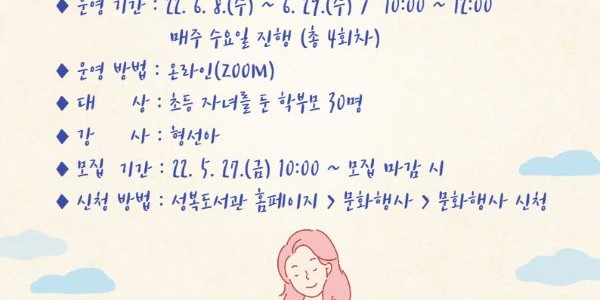 ◆ 운영 기간 : 22. 6. 8.(수) ~ 6. 29.(수) / 10:00 ~ 12:00
매주 수요일 진행 (총 4회차)
◆ 운영 방법 : 온라인(ZOOM)
◆ 대 상 : 초등 자녀를 둔 학부모 30명
◆ 강 사 : 형선아
◆ 모집 기간 : 22. 5. 27.(금) 10:00 ~ 모집 마감 시
◆ 신청 방법 : 성복도서관 홈페이지 > 문화행사 > 문화행사 신청